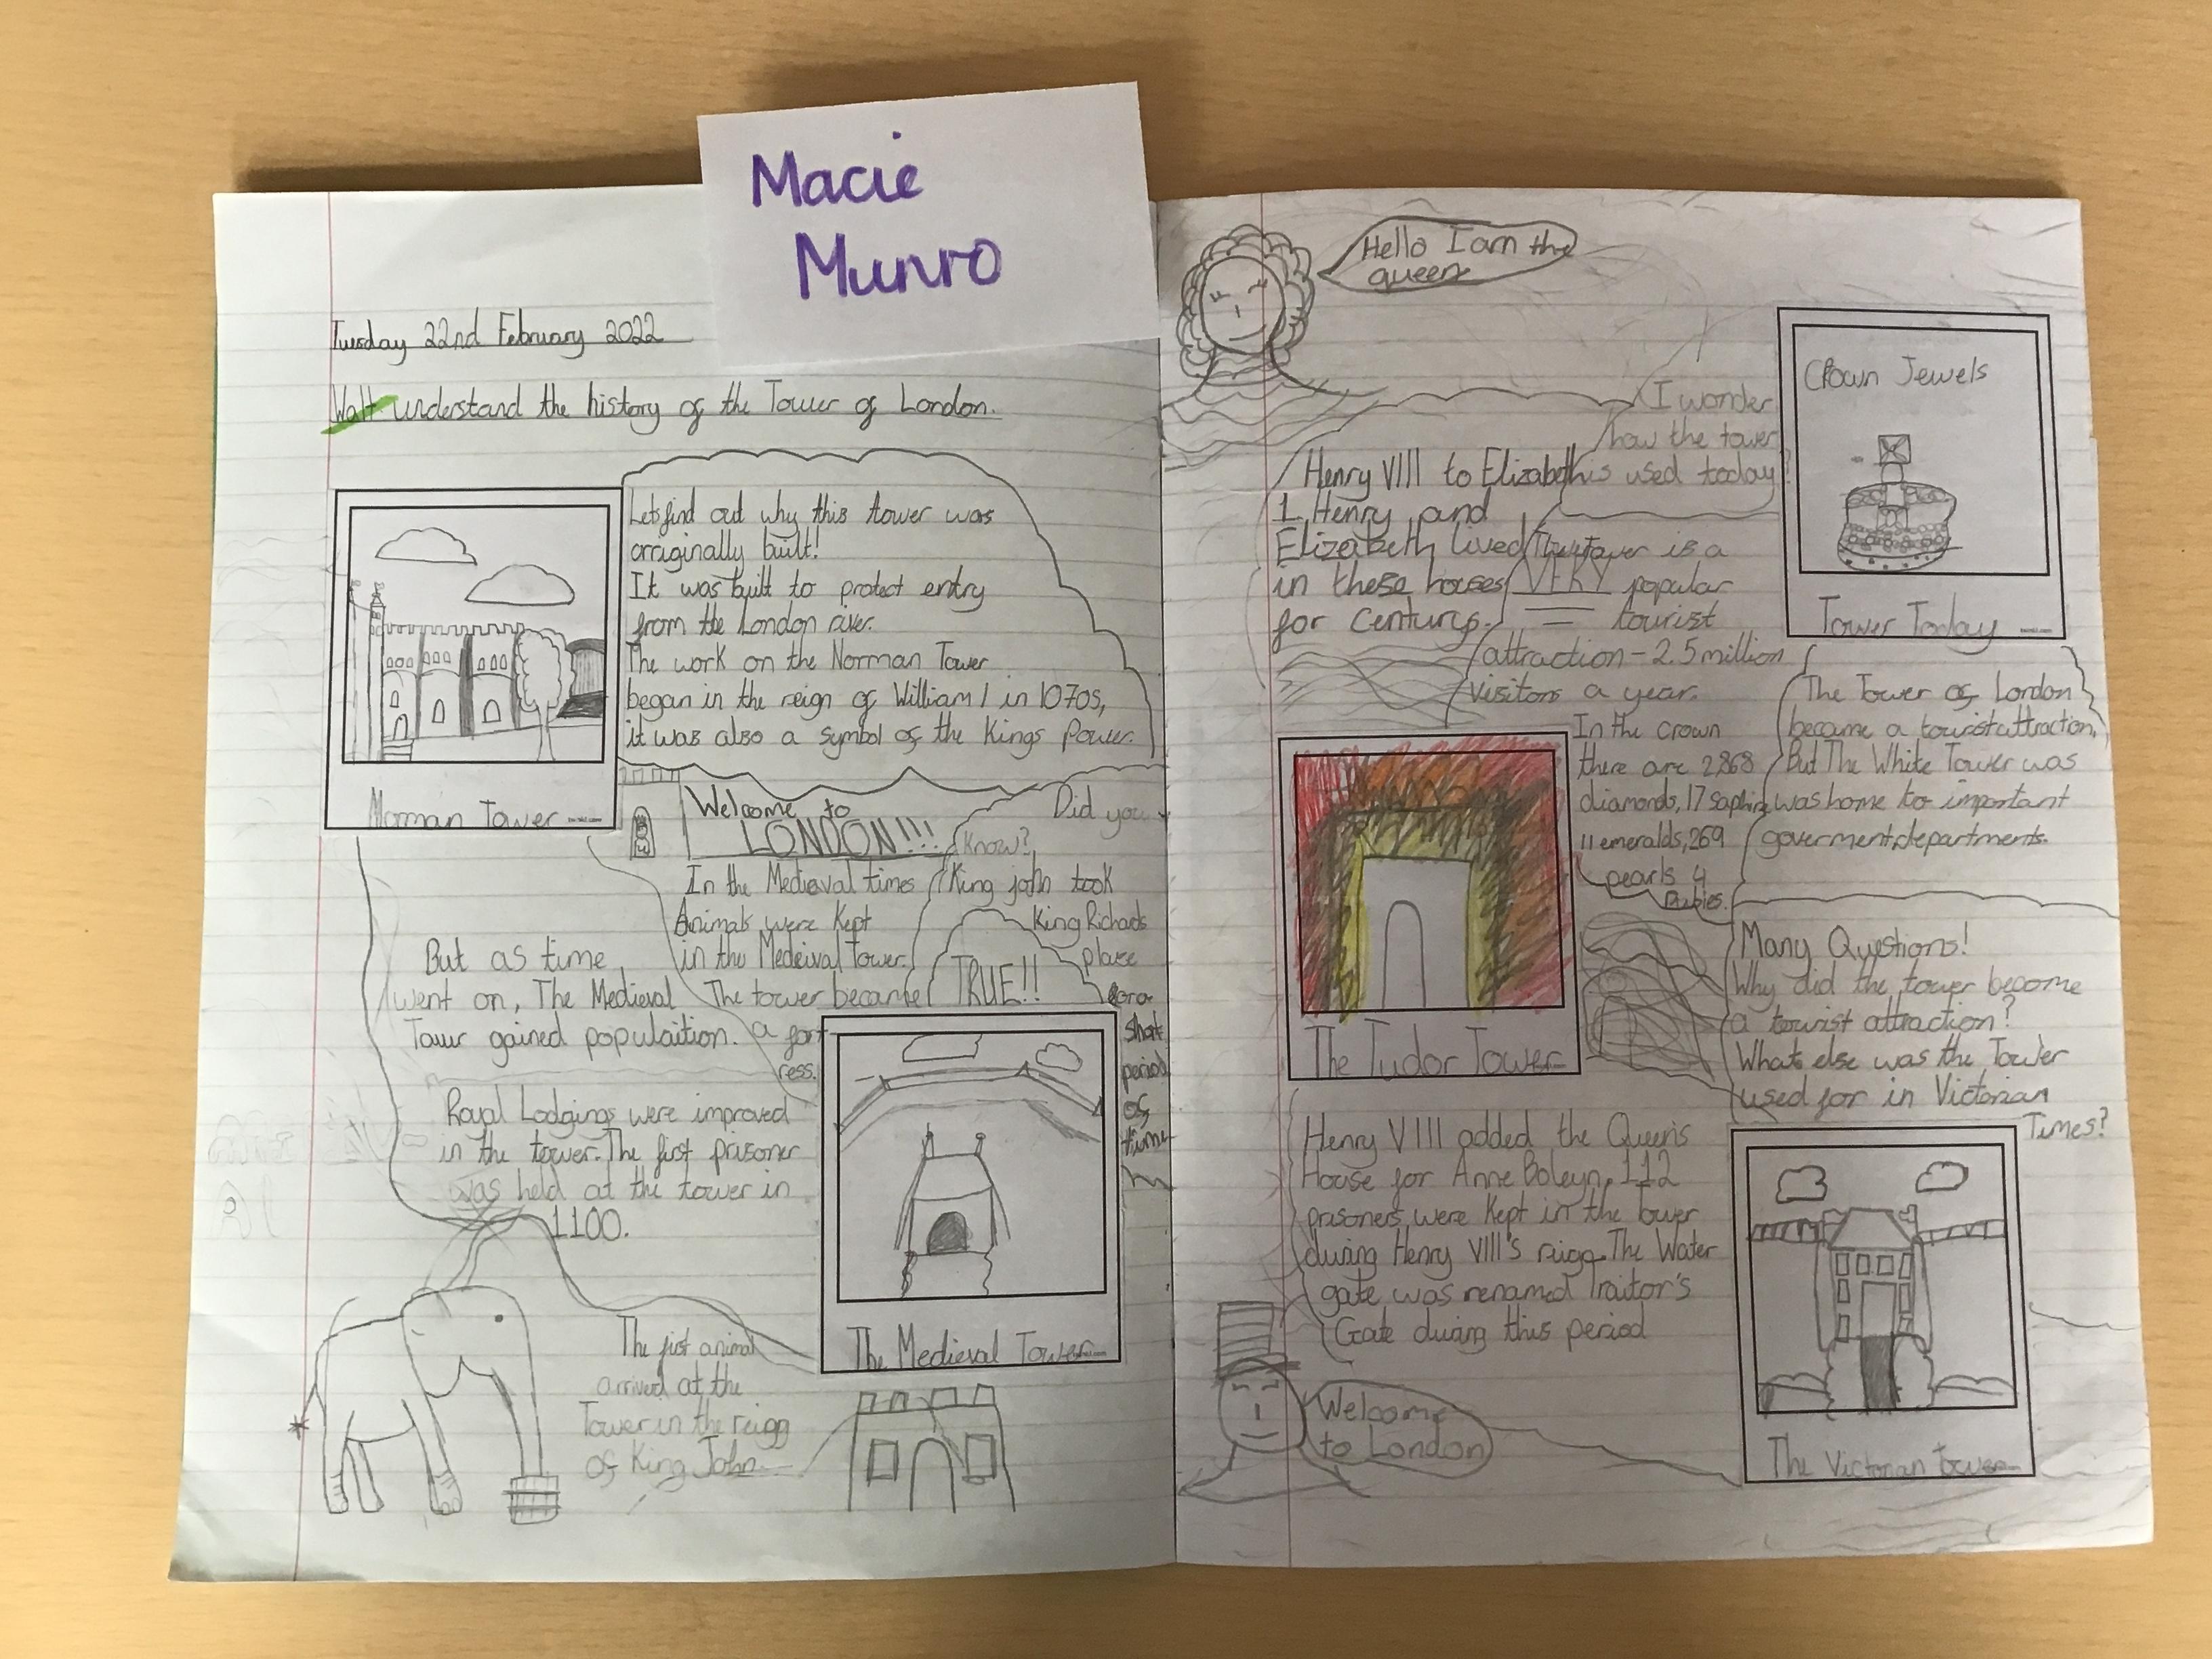 Macie
Munro
Tuesday 22nd February 2022
Walt understand the history of the Tower of London.
Lets find out why this tower was
orriginally built!
It was built to protect entry
from the London river.
The work on the Norman Tower
began in the reign of William 1 in 1070s,
it was also a symbol of the Kings Power.
Norman Tower
twinkl.com
Welcome to
LONDON!!!
In the Medieval times
Animals were Kept
in the Medeival Tower.
The tower became
a fort
ress.
Did you
Know?
King john took
King Richards
place
for a
short
period
of
time
TRUE!!
But as time
went on, The Medieval
Tower gained populaition.
Royal Lodgings were improved
in the tower. The first prisoner
was held at the tower in
1100.
The Medieval Tower
twinkl.com
The fist animal
arrived at the
Tower in the reign
of King John
Hello I am the
queen
Henry VIII to Elizabeth
1. Henry and
Elizabeth lived
in these houses
for Centurys.
I wonder
how the tower
is used today?
The tower is a
VERY popular
tourist
attraction - 2.5 million
visitors a year.
Crown Jewels
Tower Today
twinkl.com
In the crown
there are 2,868
diamonds, 17 saphire,
11 emeralds, 269
pearls 4
Rubies.
The Tower of London
became a tourist attraction,
But The White Tower was
was home to important
goverment departments.
The Tudor Tower
Many Questions!
Why did the tower become
a tourist attraction?
What else was the Tower
used for in Victorian
Times?
Henry VIII added the Queen's
House for Anne Boleyn. 112
prisoners were Kept in the Tower
during Henry VIII's reign. The Water
gate was renamed Traitor's
Gate during this period
Welcome
to London
The Victorian tower